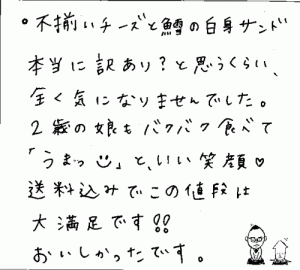 。不揃いチーズと鱈の白身サンド
本当に訳あり?と思うくらい、
全く気になりませんでした。
2歳の娘もバクバク食べて
「うまっ☺」と、いい笑顔♡
送料込みでこの値段は
大満足です!!
おいしかったです。